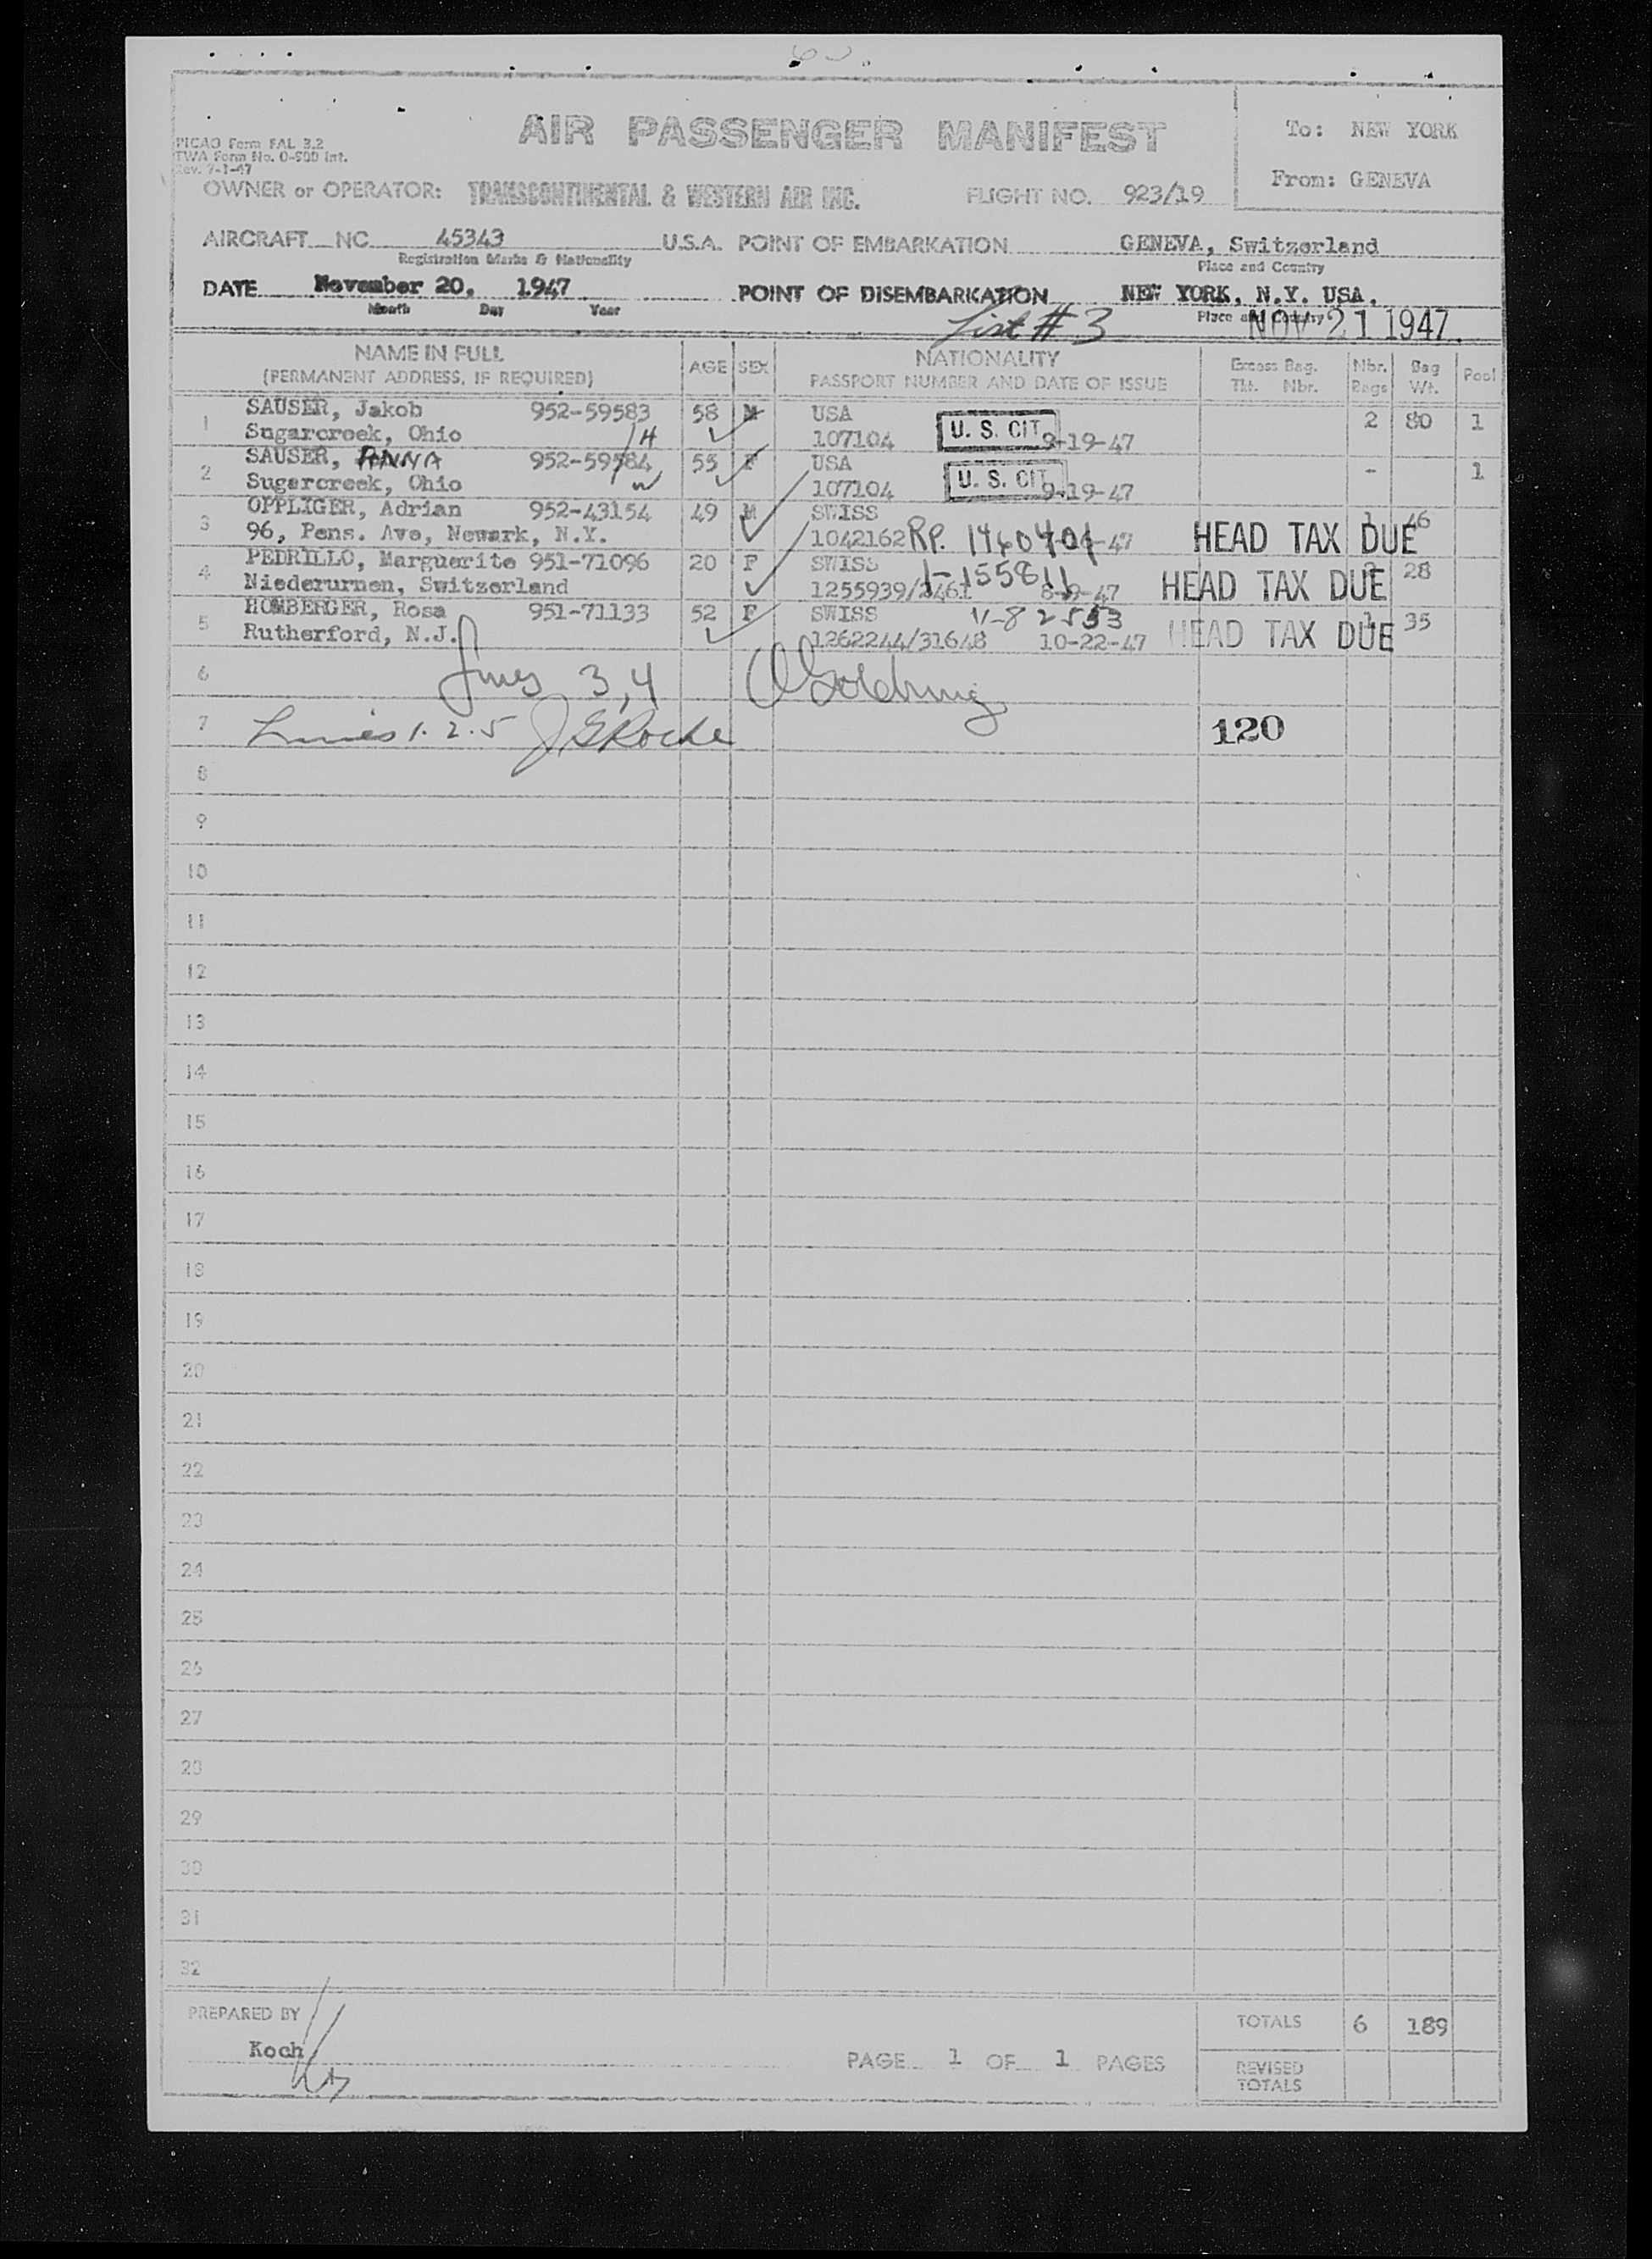 AIR PASSENGER MANIFEST
To: NEW YORK
From: GENEVA
PICAO Form FAL 3.2
TWA Form No. O-500 Int.
Rev. 7-1-47
OWNER or OPERATOR: TRANSCONTINENTAL & WESTERN AIR INC. FLIGHT NO. 923/19
AIRCRAFT NC 45343 U.S.A. POINT OF EMBARKATION GENEVA, Switzerland
Registration Marks & Nationality Place and Country
DATE November 20, 1947 POINT OF DISEMBARKATION NEW YORK, N.Y. USA.
Month Day Year Place and Country
List # 3 NOV 21 1947
NAME IN FULL AGE SEX NATIONALITY Excess Bag. Nbr. Bag Pool
(PERMANENT ADDRESS, IF REQUIRED) PASSPORT NUMBER AND DATE OF ISSUE Tkt. Nbr. Bags Wt.
1 SAUSER, Jakob 952-59583 58 M USA 2 80 1
Sugarcreek, Ohio H 107104 U. S. CIT. 9-19-47
2 SAUSER, ANNA 952-59584 55 F USA - 1
Sugarcreek, Ohio W 107104 U. S. CIT. 9-19-47
3 OPPLIGER, Adrian 952-43154 49 M SWISS 1 46
96, Pens. Ave, Newark, N.Y. 1042162 RP. 1460401 -47 HEAD TAX DUE
4 PEDRILLO, Marguerite 951-71096 20 F SWISS 28
Niederurnen, Switzerland 1255939/ I-155811 -47 HEAD TAX DUE
5 HOMBERGER, Rosa 951-71133 52 F SWISS V-82553 1 35
Rutherford, N.J. 1262244/31648 10-22-47 HEAD TAX DUE
6 Lines 3,4 Goldring
7 Lines 1. 2. 5 J G Roche 120
8
9
10
11
12
13
14
15
16
17
18
19
20
21
22
23
24
25
26
27
28
29
30
31
32
PREPARED BY TOTALS 6 189
Koch PAGE 1 OF 1 PAGES
REVISED
TOTALS